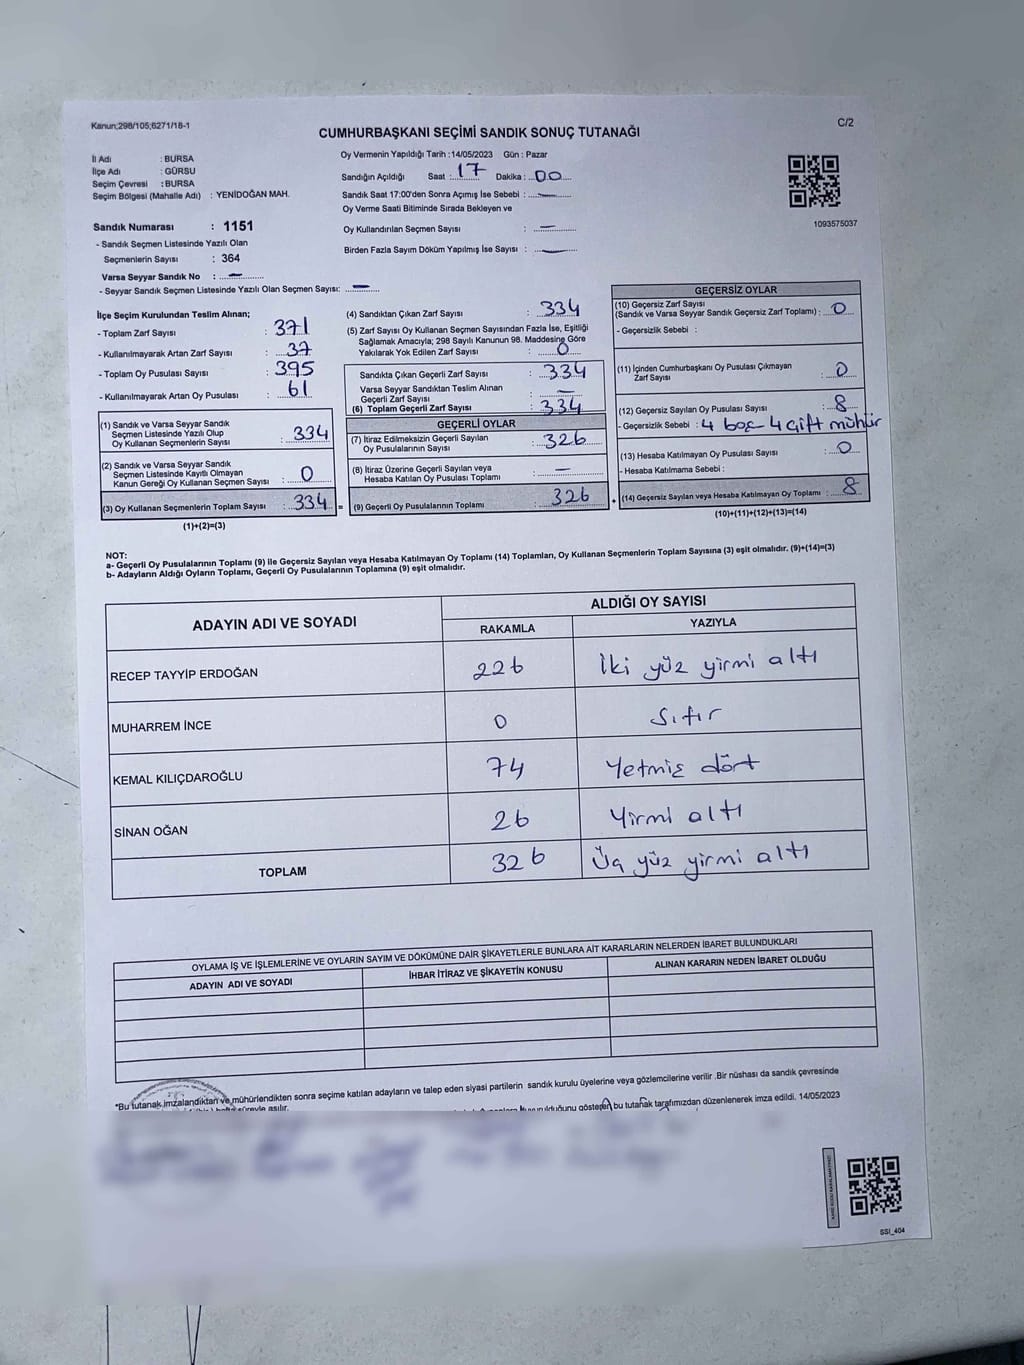 Kanun;298/105;6271/18-1
C/2
CUMHURBAŞKANI SEÇİMİ SANDIK SONUÇ TUTANAĞI
İl Adı : BURSA
İlçe Adı : GÜRSU
Seçim Çevresi : BURSA
Seçim Bölgesi (Mahalle Adı) : YENİDOĞAN MAH.
Oy Vermenin Yapıldığı Tarih :14/05/2023 Gün : Pazar
Sandığın Açıldığı Saat : 17 Dakika : 00
Sandık Saat 17:00'den Sonra Açımış İse Sebebi : —
Oy Verme Saati Bitiminde Sırada Bekleyen ve
Oy Kullandırılan Seçmen Sayısı : —
Birden Fazla Sayım Döküm Yapılmış İse Sayısı : —
1093575037
Sandık Numarası : 1151
- Sandık Seçmen Listesinde Yazılı Olan
Seçmenlerin Sayısı : 364
Varsa Seyyar Sandık No : —
- Seyyar Sandık Seçmen Listesinde Yazılı Olan Seçmen Sayısı: —
İlçe Seçim Kurulundan Teslim Alınan;
- Toplam Zarf Sayısı : 371
- Kullanılmayarak Artan Zarf Sayısı : 37
- Toplam Oy Pusulası Sayısı : 395
- Kullanılmayarak Artan Oy Pusulası : 61
(1) Sandık ve Varsa Seyyar Sandık
Seçmen Listesinde Yazılı Olup
Oy Kullanan Seçmenlerin Sayısı : 334
(2) Sandık ve Varsa Seyyar Sandık
Seçmen Listesinde Kayıtlı Olmayan
Kanun Gereği Oy Kullanan Seçmen Sayısı : 0
(3) Oy Kullanan Seçmenlerin Toplam Sayısı : 334 =
(1)+(2)=(3)
(4) Sandıktan Çıkan Zarf Sayısı : 334
(5) Zarf Sayısı Oy Kullanan Seçmen Sayısından Fazla İse, Eşitliği
Sağlamak Amacıyla; 298 Sayılı Kanunun 98. Maddesine Göre
Yakılarak Yok Edilen Zarf Sayısı : 0
Sandıkta Çıkan Geçerli Zarf Sayısı : 334
Varsa Seyyar Sandıktan Teslim Alınan
Geçerli Zarf Sayısı : —
(6) Toplam Geçerli Zarf Sayısı : 334
GEÇERLİ OYLAR
(7) İtiraz Edilmeksizin Geçerli Sayılan
Oy Pusulası Sayısı : 326
(8) İtiraz Üzerine Geçerli Sayılan veya
Hesaba Katılan Oy Pusulası Toplamı : —
(9) Geçerli Oy Pusulalarının Toplamı : 326 +
GEÇERSİZ OYLAR
(10) Geçersiz Zarf Sayısı
(Sandık ve Varsa Seyyar Sandık Geçersiz Zarf Toplamı) : 0
- Geçersizlik Sebebi :
(11) İçinden Cumhurbaşkanı Oy Pusulası Çıkmayan
Zarf Sayısı : 0
(12) Geçersiz Sayılan Oy Pusulası Sayısı : 8
- Geçersizlik Sebebi : 4 boş 4 çift mühür
(13) Hesaba Katılmayan Oy Pusulası Sayısı : 0
- Hesaba Katılmama Sebebi :
(14) Geçersiz Sayılan veya Hesaba Katılmayan Oy Toplamı : 8
(10)+(11)+(12)+(13)=(14)
NOT:
a- Geçerli Oy Pusulalarının Toplamı (9) ile Geçersiz Sayılan veya Hesaba Katılmayan Oy Toplamı (14) Toplamları, Oy Kullanan Seçmenlerin Toplam Sayısına (3) eşit olmalıdır. (9)+(14)=(3)
b- Adayların Aldığı Oyların Toplamı, Geçerli Oy Pusulalarının Toplamına (9) eşit olmalıdır.
ADAYIN ADI VE SOYADI
ALDIĞI OY SAYISI
RAKAMLA YAZIYLA
RECEP TAYYİP ERDOĞAN 226 İki yüz yirmi altı
MUHARREM İNCE 0 Sıfır
KEMAL KILIÇDAROĞLU 74 Yetmiş dört
SİNAN OĞAN 26 Yirmi altı
TOPLAM 326 Üç yüz yirmi altı
OYLAMA İŞ VE İŞLEMLERİNE VE OYLARIN SAYIM VE DÖKÜMÜNE DAİR ŞİKAYETLERLE BUNLARA AİT KARARLARIN NELERDEN İBARET BULUNDUKLARI
ADAYIN ADI VE SOYADI İHBAR İTİRAZ VE ŞİKAYETİN KONUSU ALINAN KARARIN NEDEN İBARET OLDUĞU
*Bu tutanak,imzalandıktan ve mühürlendikten sonra seçime katılan adayların ve talep eden siyasi partilerin sandık kurulu üyelerine veya gözlemcilerine verilir .Bir nüshası da sandık çevresinde
süreyle asılır.
olduğunu gösteren bu tutanak tarafımızdan düzenlenerek imza edildi. 14/05/2023
SSI_404